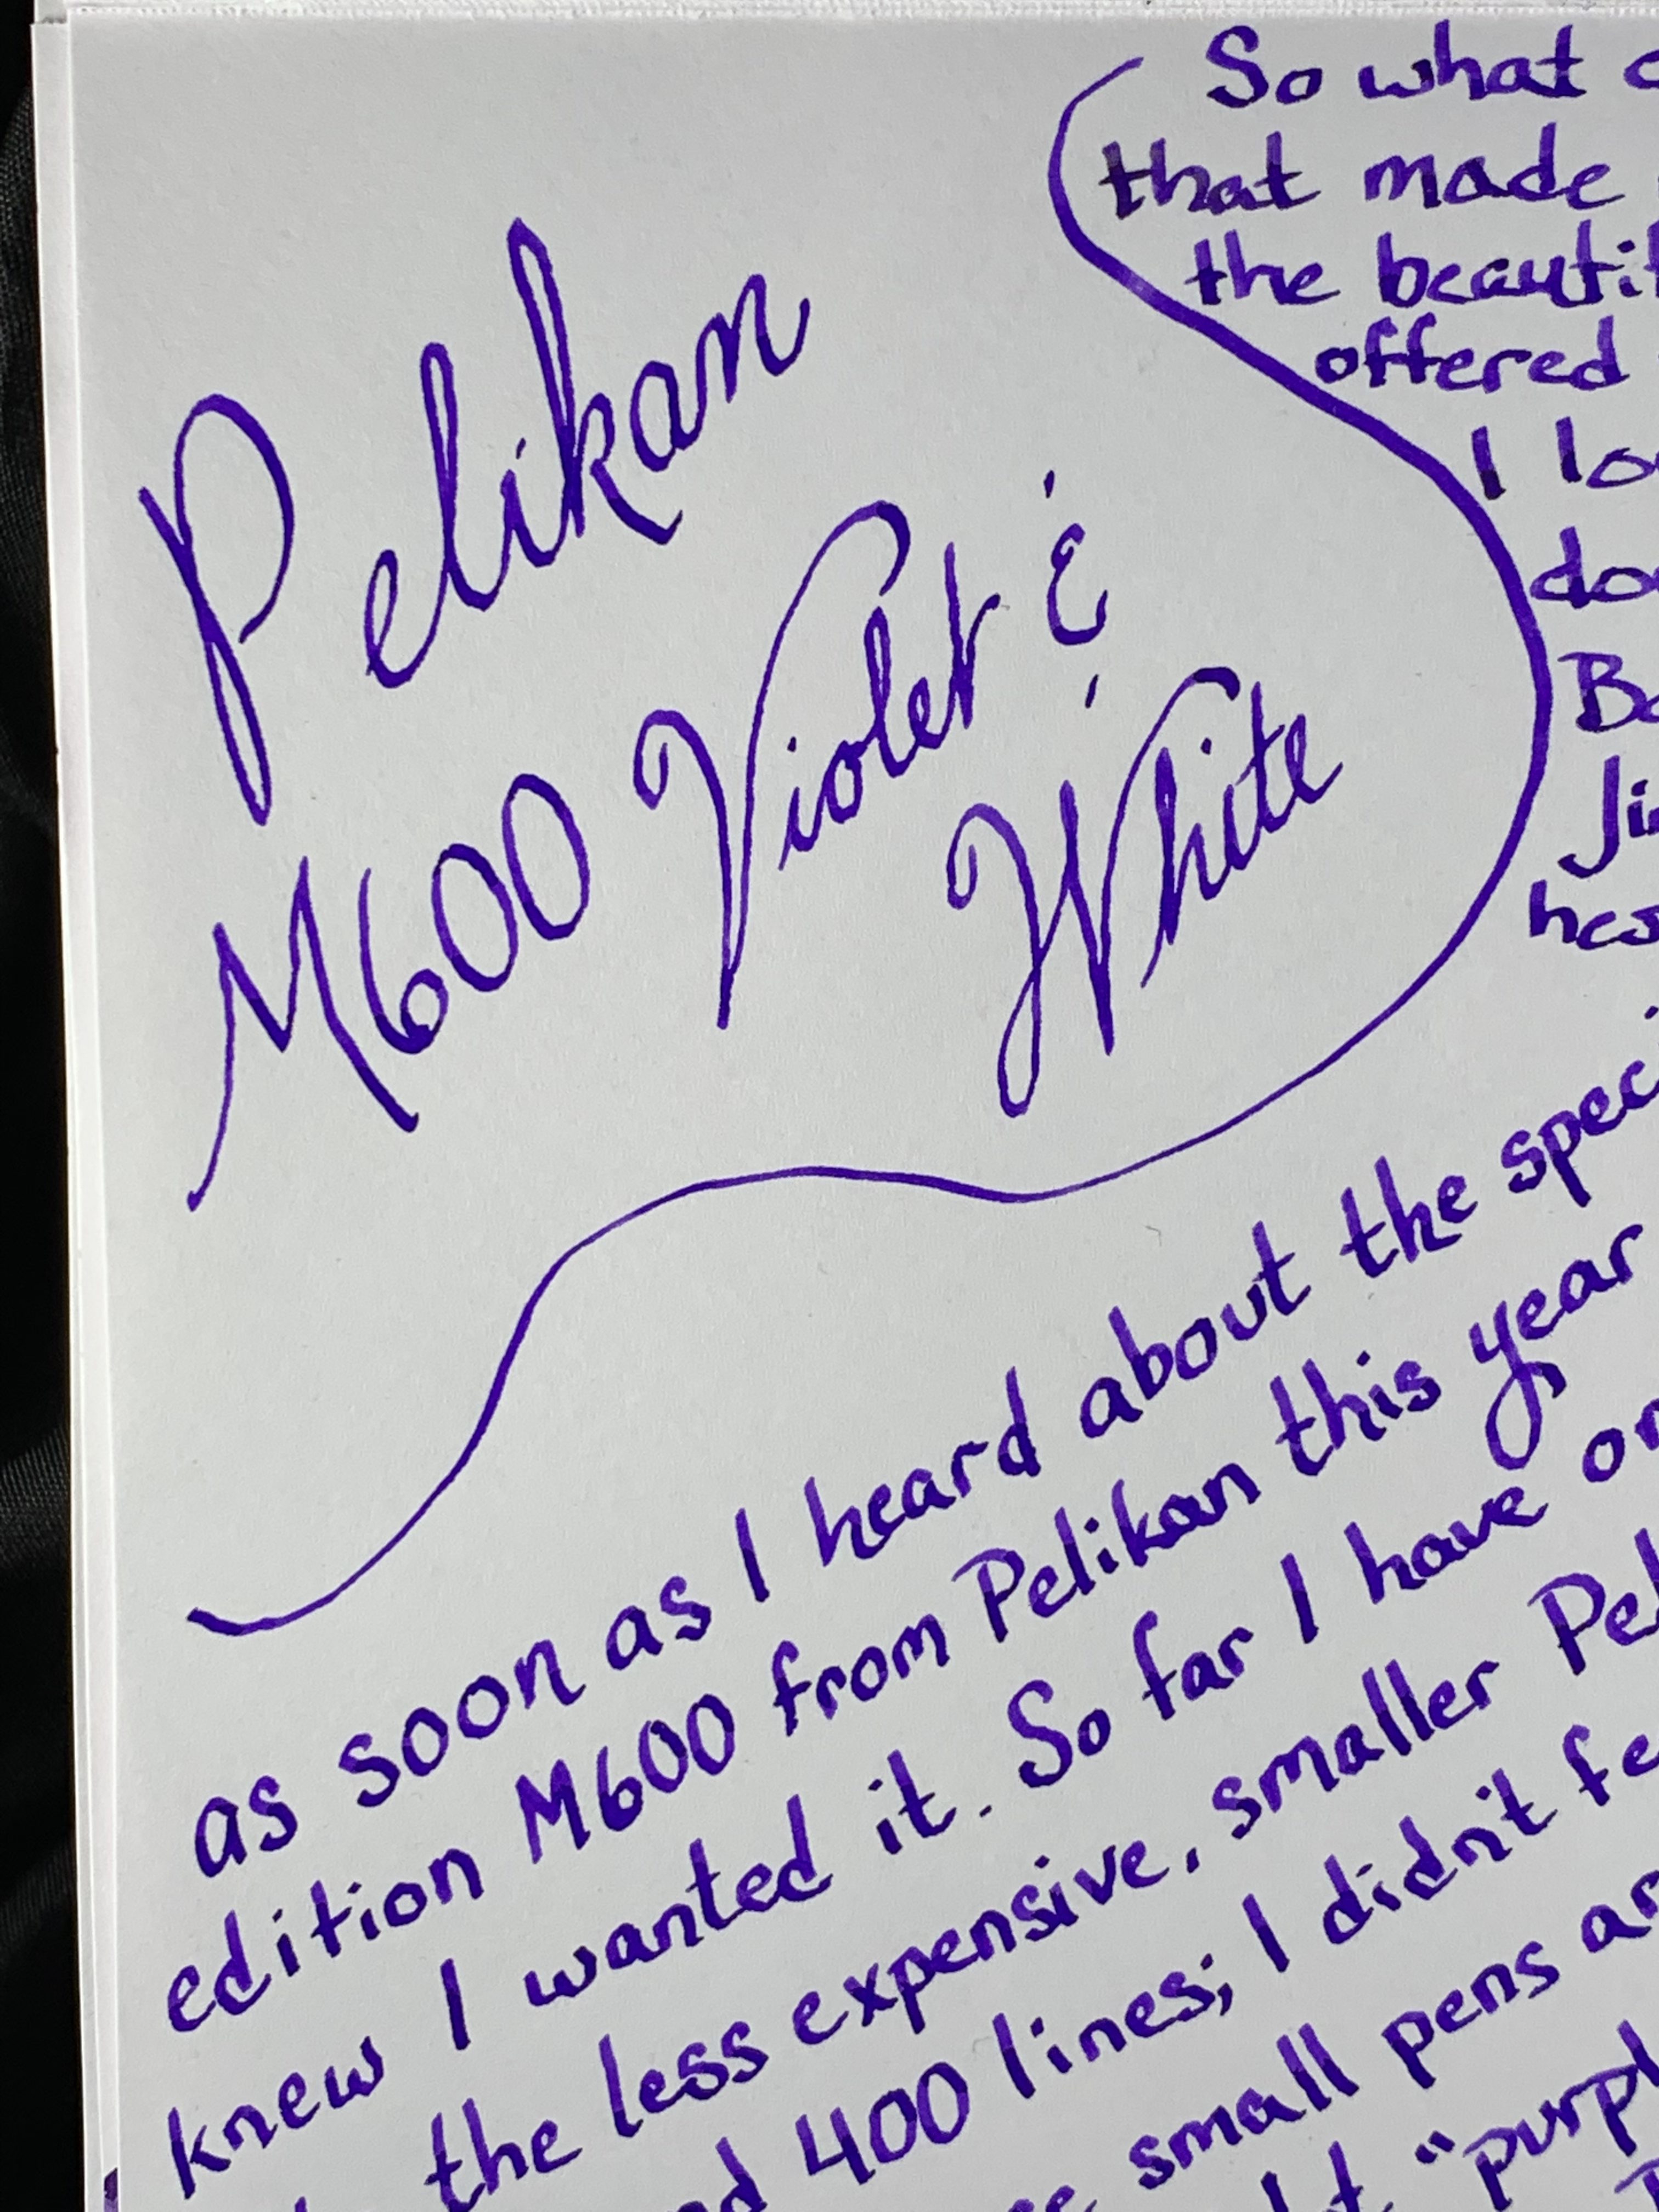 Pelikan
M600 Violet &
White
So what
that made
the
offered
I
hes
as soon as I heard about the
edition M600 from Pelikan this year
knew I wanted it. So far I have
the less expensive, smaller
400 lines; I didn't
small pens